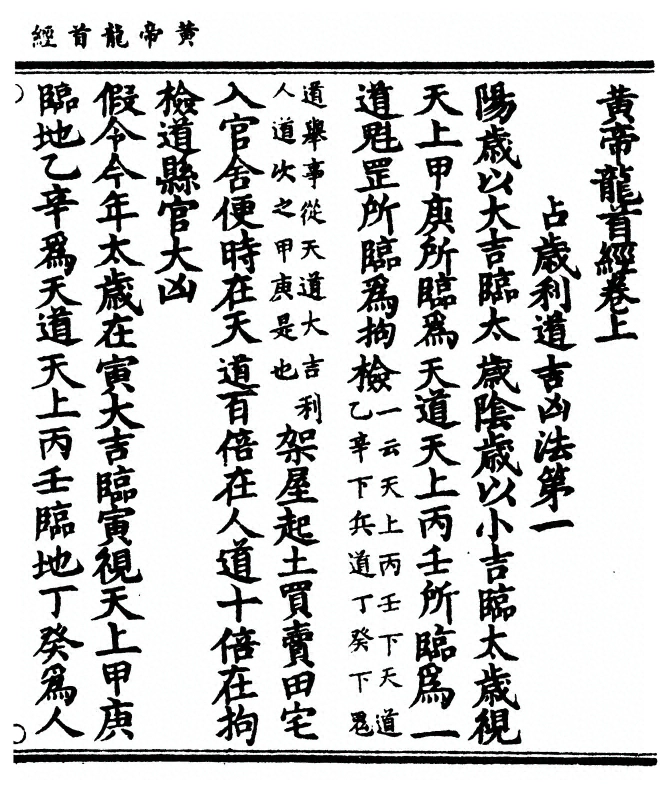 黃帝龍首經
黃帝龍首經卷上
占歲利道吉凶法第一
陽歲以大吉臨太歲陰歲以小吉臨太歲視
天上甲庚所臨爲天道天上丙壬所臨爲一
道魁罡所臨爲拘檢一云天上丙壬下天道乙辛下兵道丁癸下鬼
道舉事從天道大吉利人道次之甲庚是也架屋起土買賣田宅
入官舍便時在天道百倍在人道十倍在拘
檢道縣官大凶
假令今年太歲在寅大吉臨寅視天上甲庚
臨地乙辛爲天道天上丙壬臨地丁癸爲人